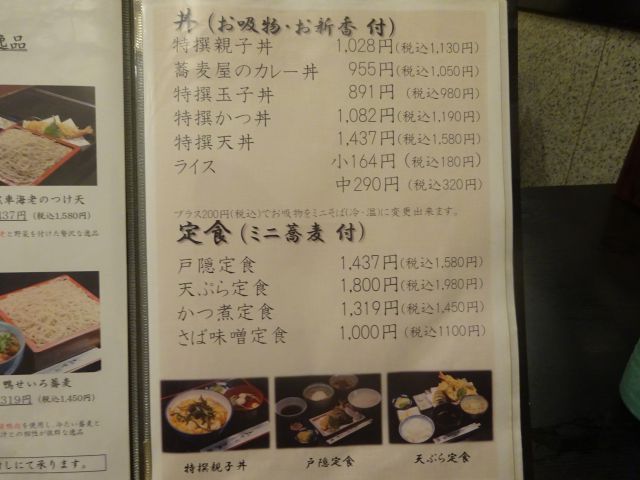 逸品
車海老のつけ天
437円 (税込1,580円)
と野菜を付けた贅沢な逸品
鴨せいろ蕎麦
319円 (税込1,450円)
を使用し 冷たい蕎麦と
汁との相性が抜群な逸品
にて承ります。
丼 (お吸物・お新香 付)
特撰親子丼 1,028円(税込1,130円)
蕎麦屋のカレー丼 955円(税込1,050円)
特撰玉子丼 891円 (税込980円)
特撰かつ丼 1,082円(税込1,190円)
特撰天丼 1,437円(税込1,580円)
ライス 小164円 (税込180円)
中290円 (税込320円)
プラス200円(税込)でお吸物をミニそば(冷・温)に変更出来ます。
定食 (ミニ蕎麦 付)
戸隠定食 1,437円(税込1,580円)
天ぷら定食 1,800円(税込1,980円)
かつ煮定食 1,319円(税込1,450円)
さば味噌定食 1,000円 (税込1100円)
特撰親子丼
戸隠定食
天ぷら定食